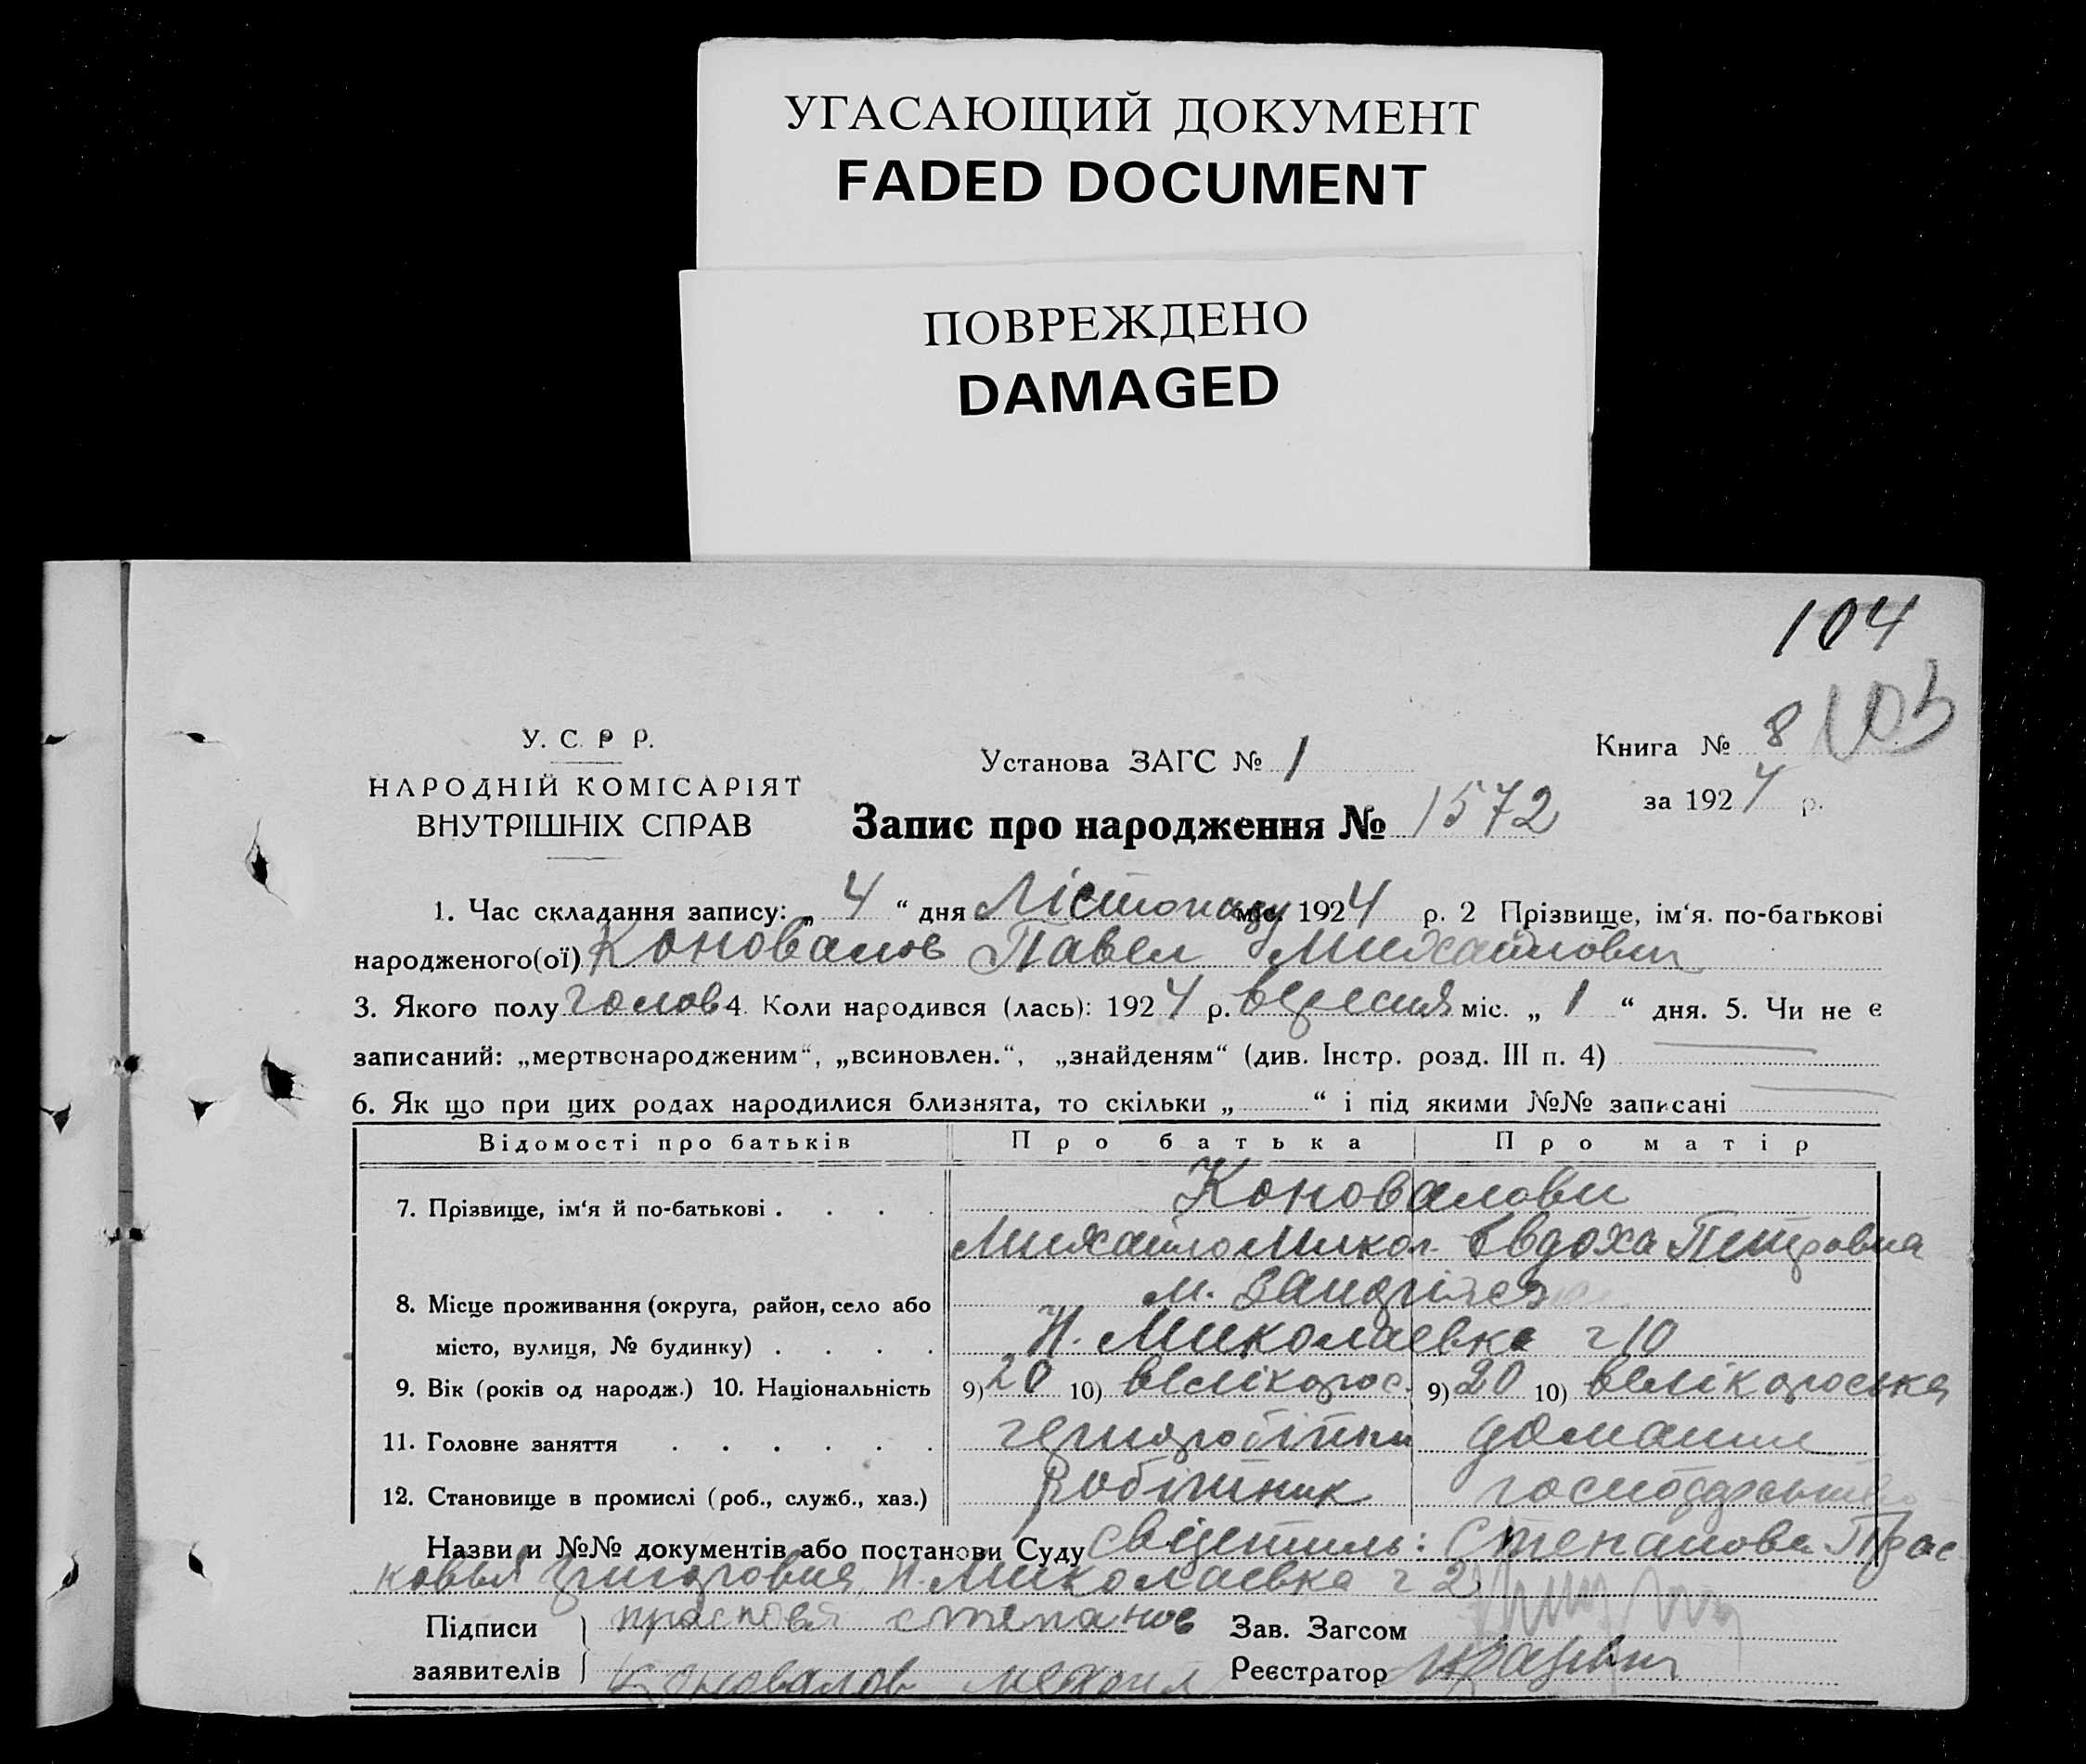 УГАСАЮЩИЙ ДОКУМЕНТ
FADED DOCUMENT
ПОВРЕЖДЕНО
DAMAGED
104
103
У. С. Р. Р.
НАРОДНІЙ КОМІСАРІЯТ
ВНУТРІШНІХ СПРАВ
Установа ЗАГС № 1
Книга № 8
за 1924 р.
Запис про народження № 1572
1. Час складання запису: „ 4 “ дня Лістопаду міс. 1924 р. 2 Прізвище, ім‘я. по-батькові
народженого(ої) Коновалов Павел Михайлович
3. Якого полу голов 4. Коли народився (лась): 1924 р. вересня міс. „ 1 “ дня. 5. Чи не є
записаний: „мертвонародженим“, „всиновлен.“, „знайденям“ (див. Інстр. розд. III п. 4)
6. Як що при цих родах народилися близнята, то скільки „ “ і під якими №№ записані
Відомості про батьків Про батька Про матір
7. Прізвище, ім‘я й по-батькові . . . . Коновалови
Михайло Микол. Євдоха Петровна
8. Місце проживання (округа, район, село або м.
місто, вулиця, № будинку) . . . . Н. Миколаевка 210
9. Вік (років од народж.) 10. Національність 9) 20 10) велікорос. 9) 20 10) велікороська
11. Головне заняття . . . . . . чернороб домашнє
12. Становище в промислі (роб., служб., хаз.) Робітник господарьство
Назви и №№ документів або постанови Суду Свідетиль: Степанова Прас
ковья Григоровна, Н. Миколаевка 2
Підписи прасковя степанов Зав. Загсом
заявителів Коновалов Михаил Реєстратор